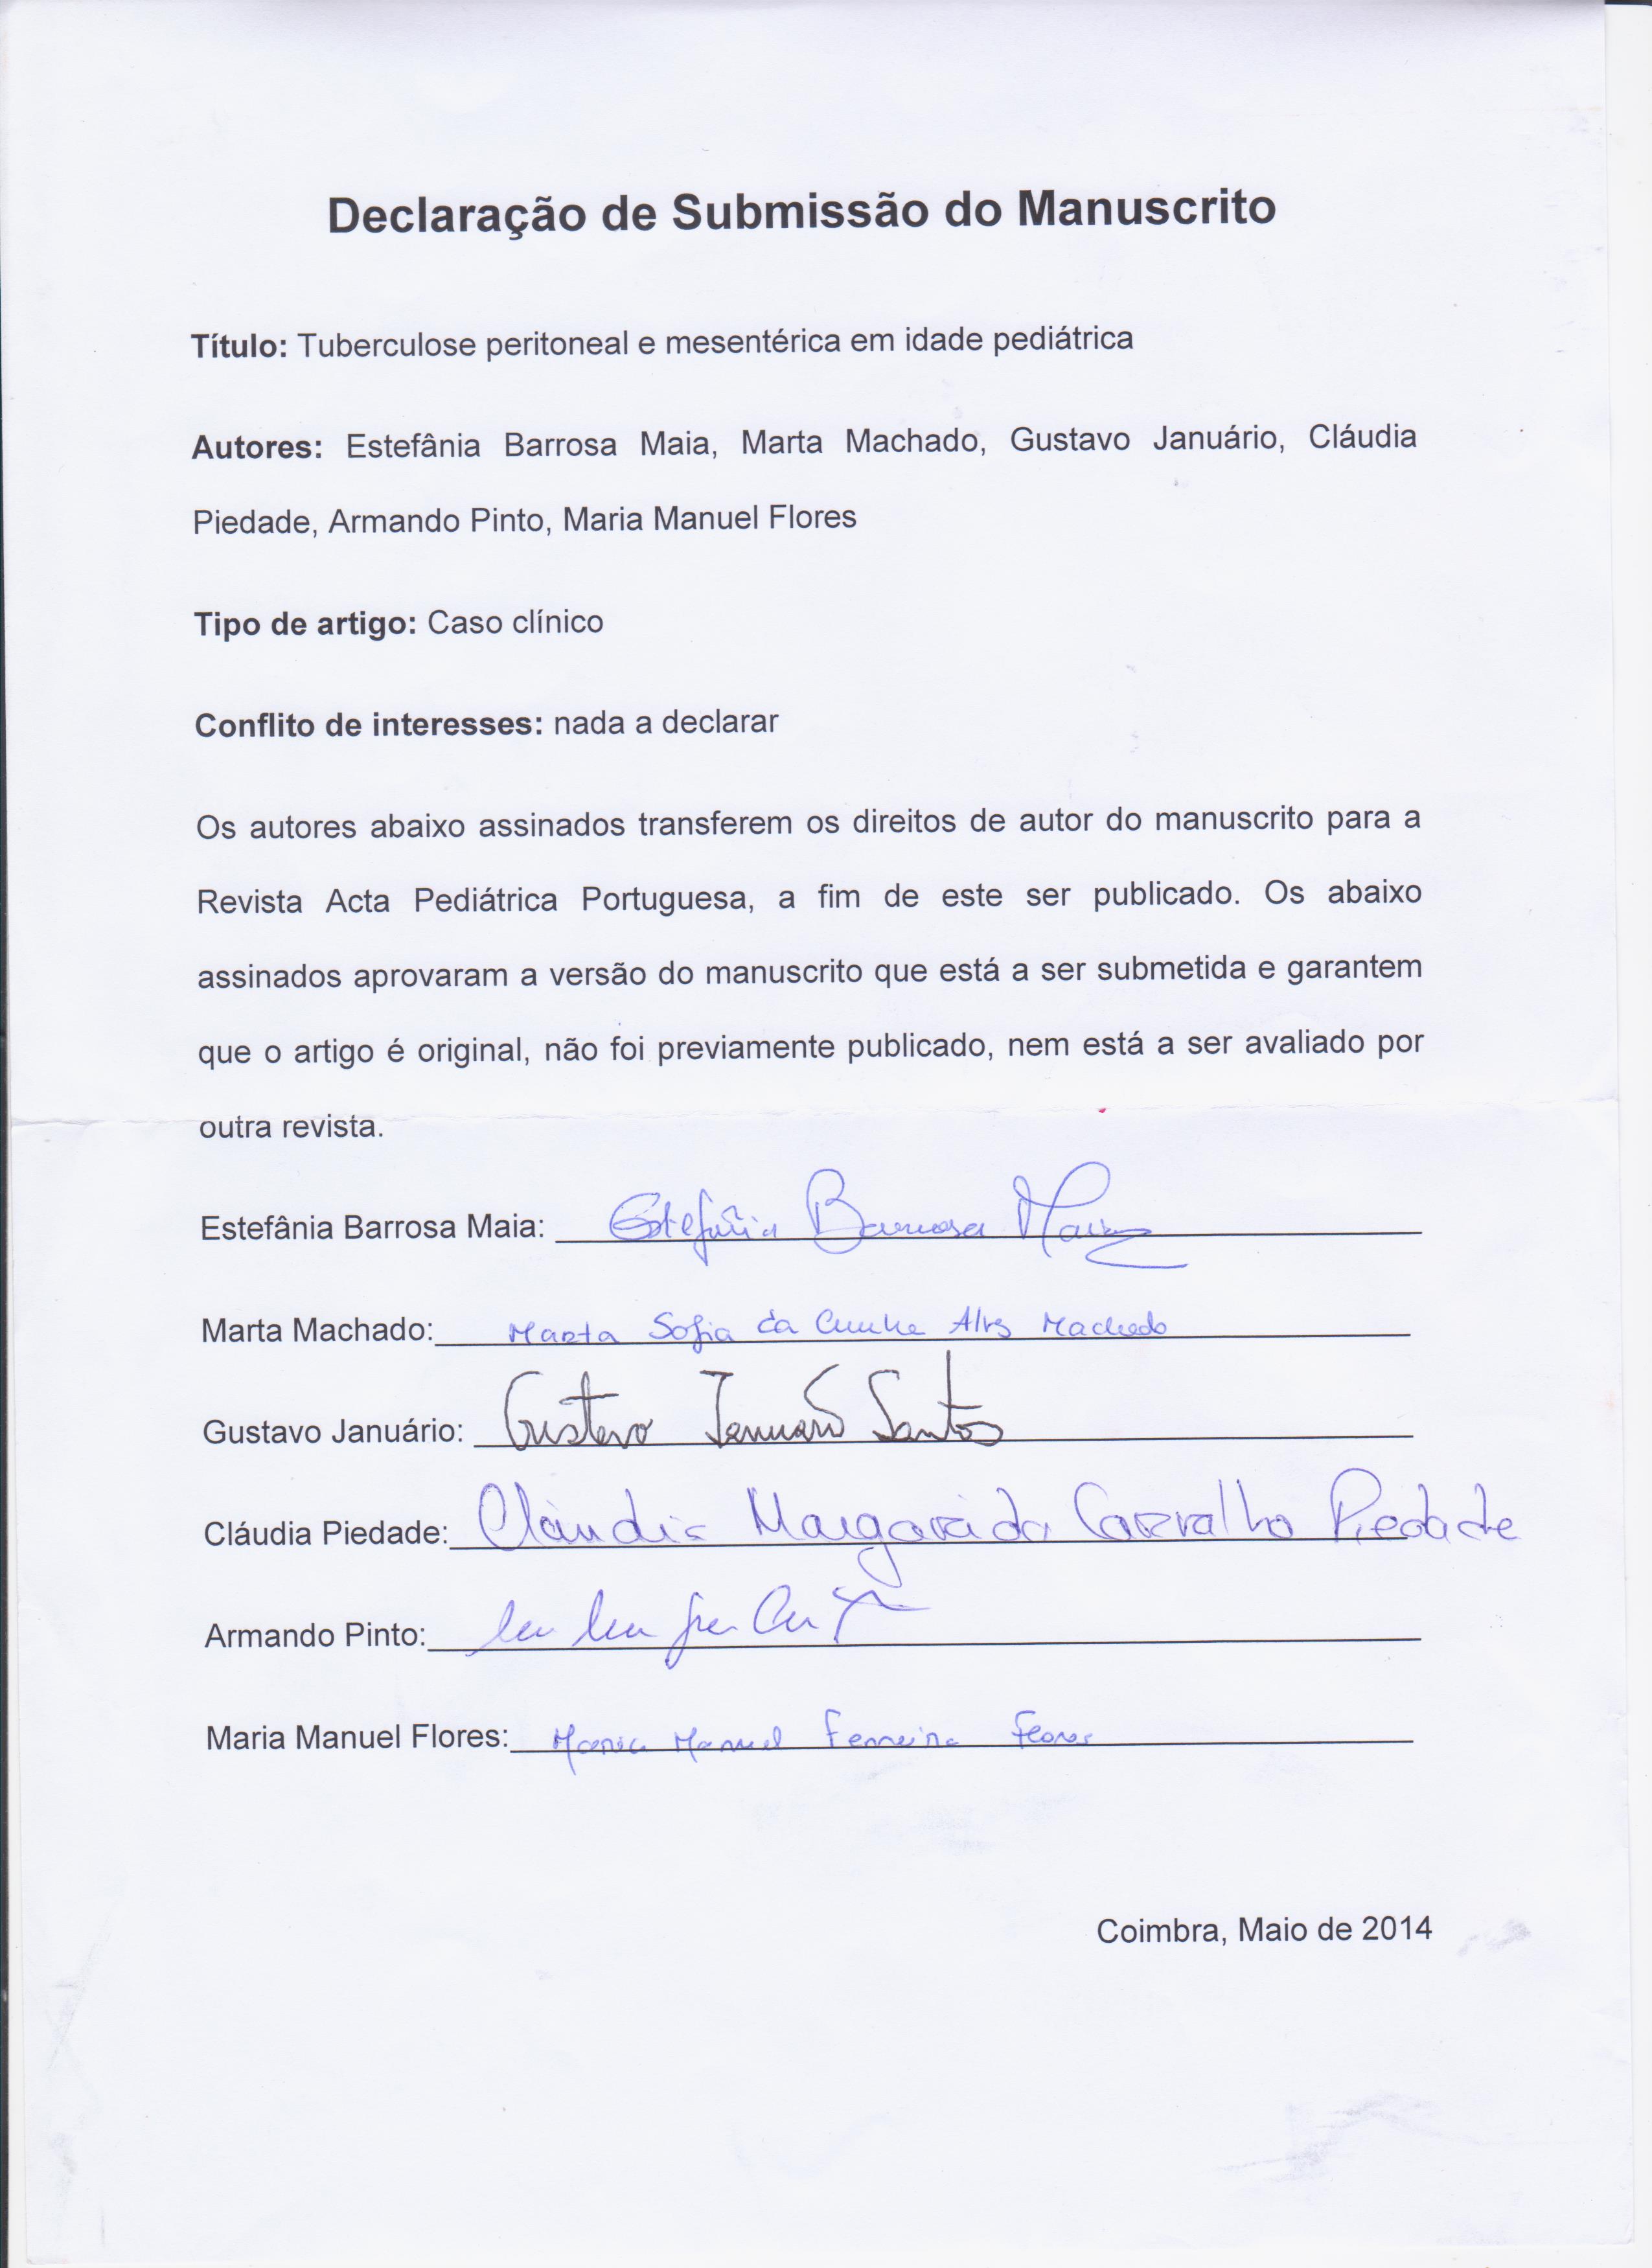 Declaração de Submissão do Manuscrito
Título: Tuberculose peritoneal e mesentérica em idade pediátrica
Autores: Estefânia Barrosa Maia, Marta Machado, Gustavo Januário, Cláudia
Piedade, Armando Pinto, Maria Manuel Flores
Tipo de artigo: Caso clínico
Conflito de interesses: nada a declarar
Os autores abaixo assinados transferem os direitos de autor do manuscrito para a
Revista Acta Pediátrica Portuguesa, a fim de este ser publicado. Os abaixo
assinados aprovaram a versão do manuscrito que está a ser submetida e garantem
que o artigo é original, não foi previamente publicado, nem está a ser avaliado por
outra revista.
Estefânia Barrosa Maia: Estefânia Barrosa Maia
Marta Machado: Marta Sofia da Cunha Alves Machado
Gustavo Januário: Gustavo Januário Santos
Cláudia Piedade: Cláudia Margarida Carvalho Piedade
Armando Pinto:
Maria Manuel Flores: Maria Manuel Ferreira Flores
Coimbra, Maio de 2014